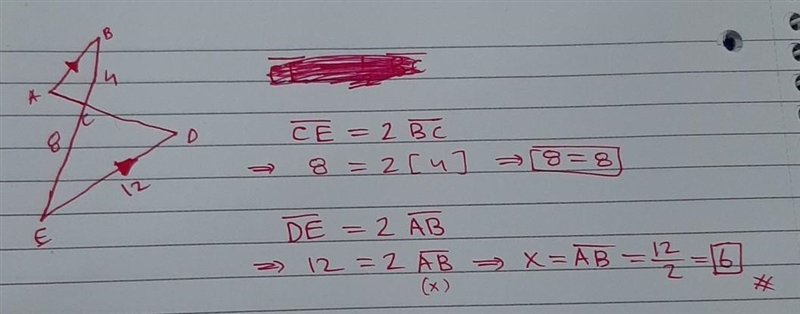 B
4
A
C
8
D
12
E
C̅E̅ = 2 B̅C̅
⇒ 8 = 2 [4] ⇒ 8 = 8
D̅E̅ = 2 A̅B̅
⇒ 12 = 2 A̅B̅ ⇒ X = A̅B̅ = 12/2 = 6 #
(x)